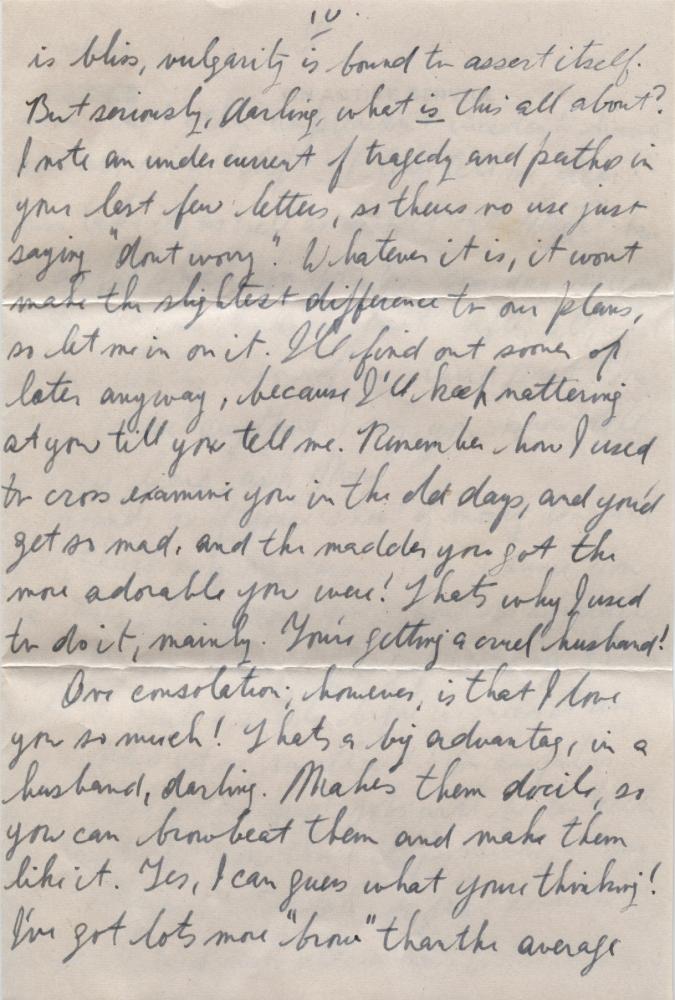 IV.
is bliss, vulgarity is bound to assert itself.
But seriously, darling, what is this all about?
I note an undercurrent of tragedy and pathos in
your last few letters, so theres no use just
saying "dont worry". Whatever it is, it wont
make the slightest difference to our plans,
so let me in on it. I'll find out sooner or
later anyway, because I'll keep nattering
at you till you tell me. Remember how I used
to cross examine you in the old days, and you'd
get so mad, and the madder you got the
more adorable you were! Thats why I used
to do it, mainly. You're getting a cruel husband!
One consolation, however, is that I love
you so much! Thats a big advantage, in a
husband, darling. Makes them docile, so
you can browbeat them and make them
like it. Yes, I can guess what youre thinking!
I've got lots more "brow" than the average